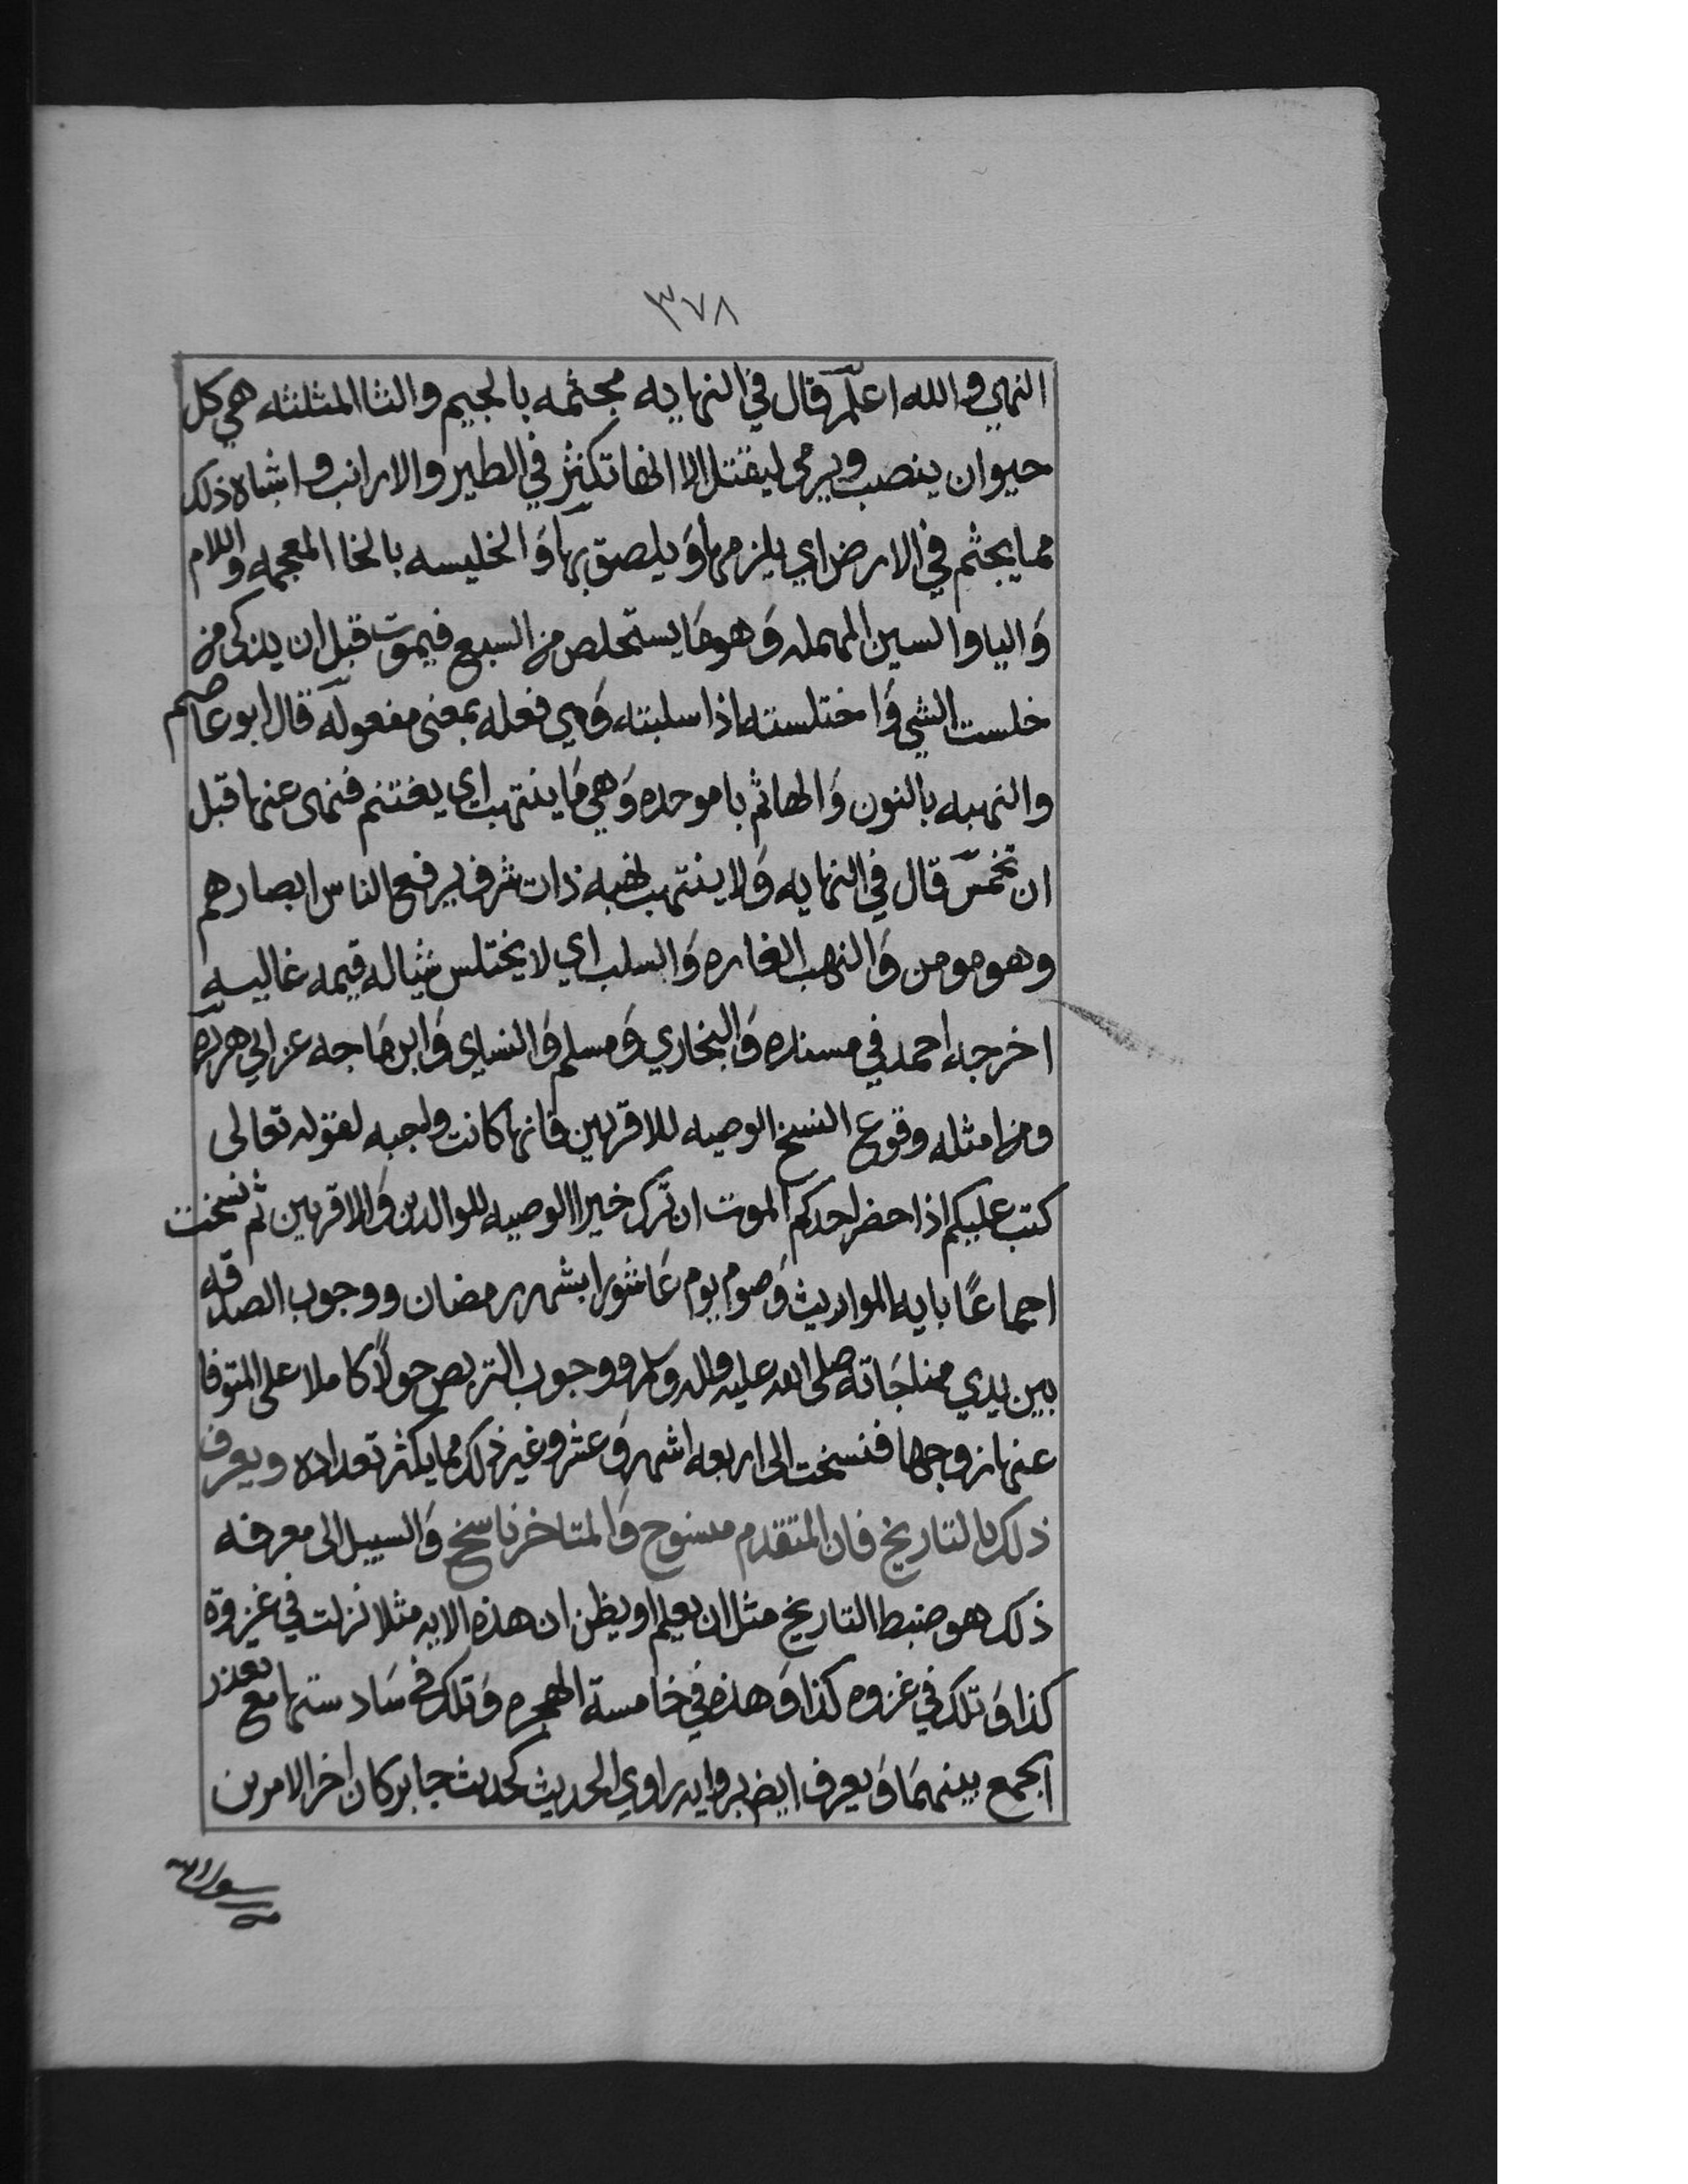 ٣٧٨
النهي والله اعلم قال في النهايه مجثمه بالجيم والثا المثلثه هي كل
حيوان ينصب ويرمى ليقتل الا انها تكثر في الطير والارانب واشباه ذلك
مما يجثم في الارض اي يلزمها وَيلصق بها وَالخليسه بالخا المعجمه واللام
وَاليا والسين المهمله وَهو مَا يستخلص من السبع فيموت قبل ان يذكى من
خلست الشي وَاختلسته اذا سلبته وَهي فعله بمعنى مفعوله قال ابو عاصم
والنهبه بالنون وَالها ثم با موحده وَهي مَا ينتهب اي يغتنم فنهى عنها قبل
ان تخمس قال في النهايه وَلا ينتهب نهبه ذات شرف يرفع الناس ابصارهم
وهو مومن وَالنهب الغاره وَالسلب اي لا يختلس شيا له قيمه غاليه
اخرجه احمد في مسنده وَالبخاري وَمسلم وَالنساي وَابن مَاجه عن ابي هريره
ومن امثله وقوع النسخ الوصيه للاقربين فانها كانت واجبه لقوله تعالى
كتب عليكم اذا حضر احدكم الموت ان ترك خيرا الوصيه للوالدين وَالاقربين ثم نسخت
اجماعًا بايه المواريث وَصوم يوم عَاشورا بشهر رمضان ووجوب الصدقه
بين يدي مناجَاته صلى الله عليه واله وسلم ووجوب التربص حولًا كاملا على المتوفا
عنها زوجها فنسخت الى اربعه اشهر وَعشر وغير ذلك مما يكثر تعداده ويعرف
ذلك بالتاريخ فان المتقدم منسوخ وَالمتاخر ناسخ وَالسبيل الى معرفه
ذلك هو ضبط التاريخ مثل ان يعلم او يظن ان هذه الايه مثلا نزلت في غزوة
كذا وَتلك في غزوه كذا وَهذه في خامسة الهجره وَتلك في سَادستها مع تعذر
الجمع بينهمَا وَيعرف ايض بروايه راوي الحديث كحديث جابر كان اخر الامرين